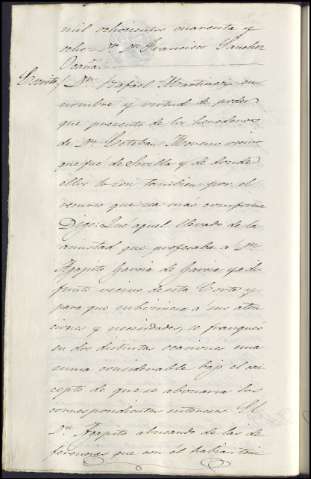 mil ochocientos cuarenta y
ocho = Dn Francisco Sanchez
Ocaña =
Escrito / Dn Rafael Martinez en
nombre y virtud de poder
que presento de los herederos
de Dn Esteban Moreno vecino
que fué de Sevilla y de donde
ellos lo son tambien, por el
recurso que sea mas oportuno
Digo: Que aquel llevado de la
amistad que profesaba a Dn
Agapito Garcia de Garcia ya di-
funto vecino de esta Corte y
para que subviniese a sus aten-
ciones y necesidades, le franqueó
en dos distintas ocasiones una
suma considerable bajo el con-
cepto de que se abonaria los
correspondientes intereses. El
Dn Agapito abusando de las de-
ferencias que con el habian ten